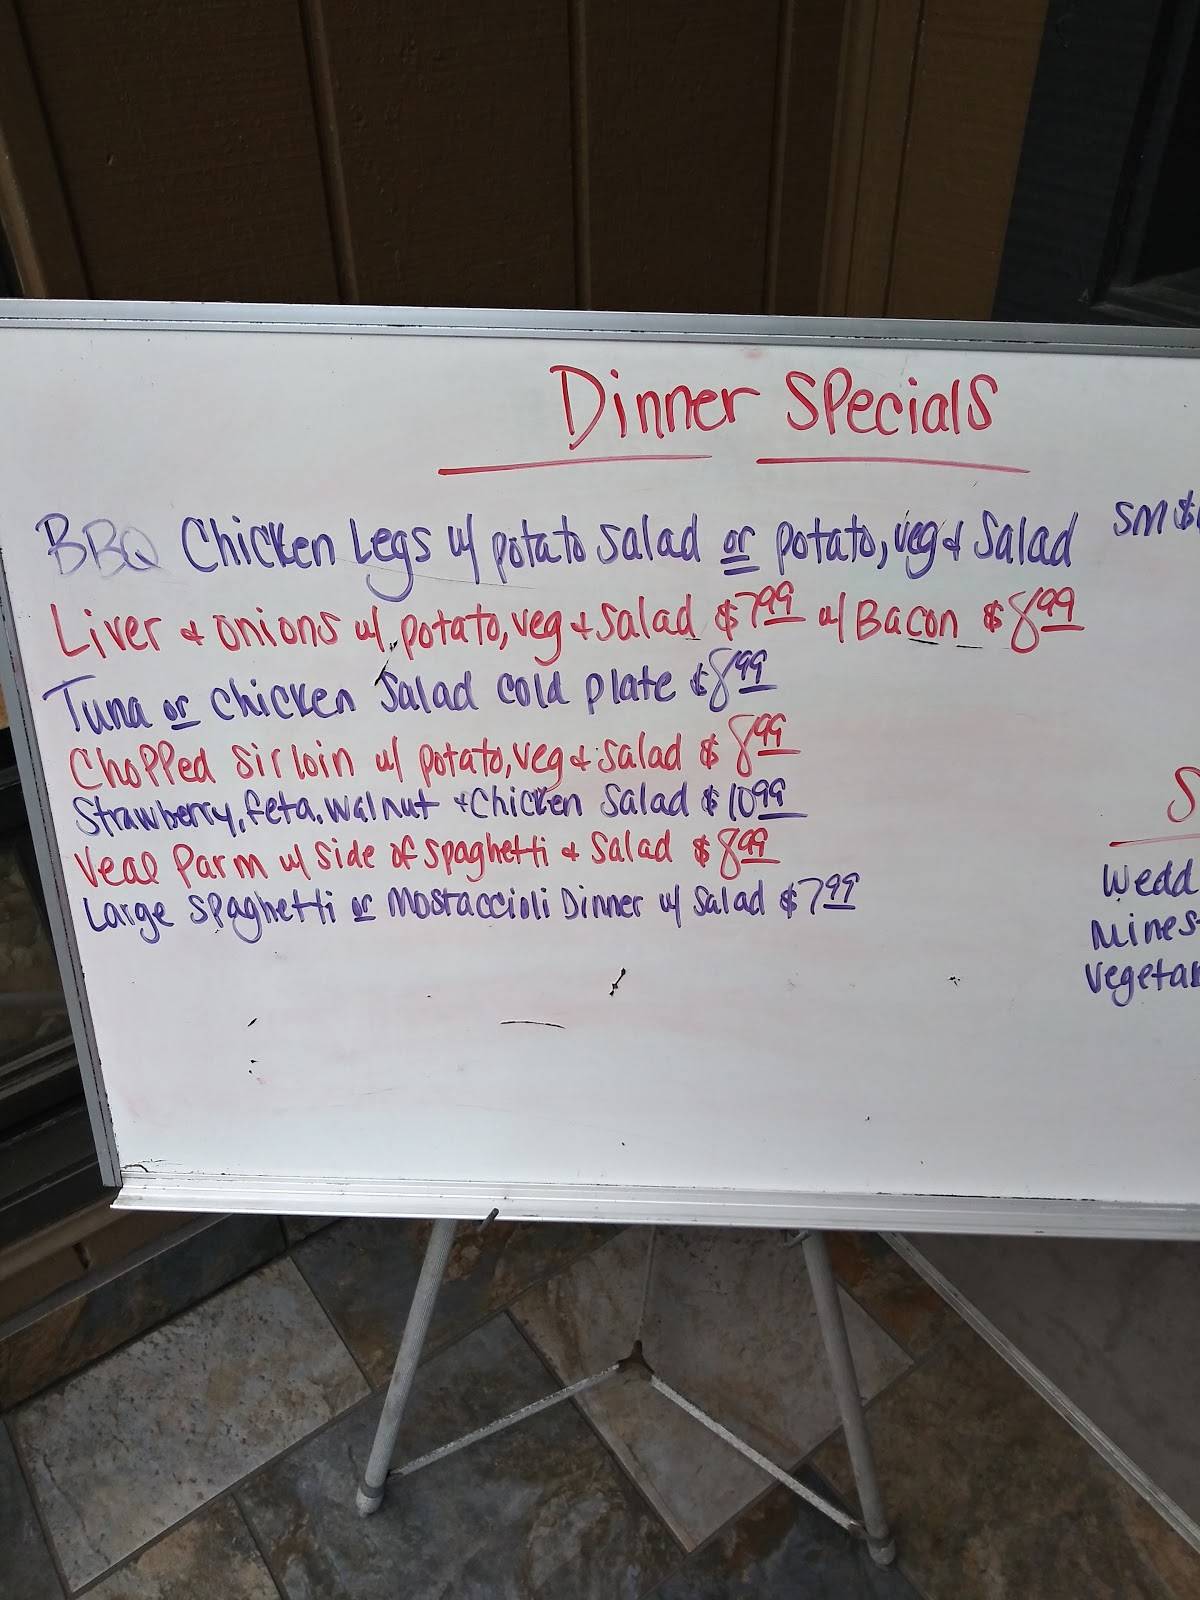 Dinner Specials
BBQ Chicken Legs w/ potato salad or potato, veg & Salad SM $
Liver & onions w/ potato, veg & Salad $7.99 w/ Bacon $8.99
Tuna or Chicken Salad cold plate $8.99
Chopped Sirloin w/ potato, veg & Salad $8.99
Strawberry, feta, walnut & Chicken Salad $10.99
Veal Parm w/ side of spaghetti & Salad $8.99
Large Spaghetti or Mostaccioli Dinner w/ Salad $7.99
S
Wedd
Mines
Vegetab